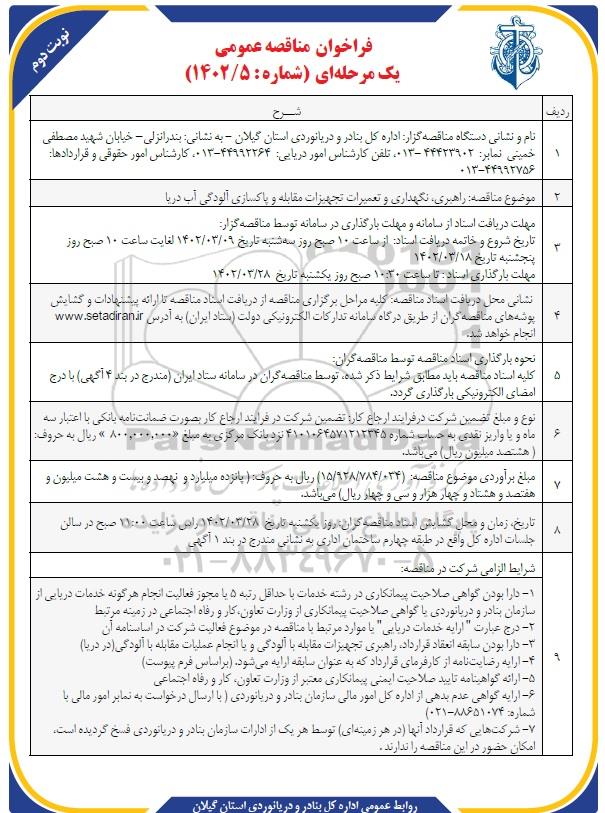 نوبت دوم
فراخوان مناقصه عمومی
یک مرحله‌ای (شماره: ۱۴۰۲/۵)
ردیف
شــرح
۱
نام و نشانی دستگاه مناقصه‌گزار: اداره کل بنادر و دریانوردی استان گیلان – به نشانی: بندرانزلی– خیابان شهید مصطفی
خمینی نمابر: ۴۴۴۲۳۹۰۲ -۰۱۳، تلفن کارشناس امور دریایی: ۴۴۹۹۲۲۶۴-۰۱۳، کارشناس امور حقوقی و قراردادها:
۴۴۹۹۲۷۵۶-۰۱۳
۲
موضوع مناقصه: راهبری، نگهداری و تعمیرات تجهیزات مقابله و پاکسازی آلودگی آب دریا
۳
مهلت دریافت اسناد از سامانه و مهلت بارگذاری در سامانه توسط مناقصه‌گزار:
تاریخ شروع و خاتمه دریافت اسناد: از ساعت ۱۰ صبح روز سه‌شنبه تاریخ ۱۴۰۲/۰۳/۰۹ لغایت ساعت ۱۰ صبح روز
پنجشنبه تاریخ ۱۴۰۲/۰۳/۱۸
مهلت بارگذاری اسناد : تا ساعت ۱۰:۳۰ صبح روز یکشنبه تاریخ ۱۴۰۲/۰۳/۲۸
۴
نشانی محل دریافت اسناد مناقصه: کلیه مراحل برگزاری مناقصه از دریافت اسناد مناقصه تا ارائه پیشنهادات و گشایش
پوشه‌های مناقصه‌گران از طریق درگاه سامانه تدارکات الکترونیکی دولت (ستاد ایران) به آدرس www.setadiran.ir
انجام خواهد شد.
۵
نحوه بارگذاری اسناد مناقصه توسط مناقصه‌گران:
کلیه اسناد مناقصه باید مطابق شرایط ذکر شده، توسط مناقصه‌گران در سامانه ستاد ایران (مندرج در بند ۴ آگهی) با درج
امضای الکترونیکی بارگذاری گردد.
۶
نوع و مبلغ تضمین شرکت درفرایند ارجاع کار: تضمین شرکت در فرایند ارجاع کار بصورت ضمانت‌نامه بانکی با اعتبار سه
ماه و یا واریز نقدی به حساب شماره ۴۱۰۱۰۶۴۵۷۱۲۱۲۳۴۵ نزد بانک مرکزی به مبلغ «۸۰۰,۰۰۰,۰۰۰ » ریال به حروف:
( هشتصد میلیون ریال) می‌باشد.
۷
مبلغ برآوردی موضوع مناقصه: (۱۵/۹۲۸/۷۸۴/۰۳۴) ریال به حروف: ( پانزده میلیارد و نهصد و بیست و هشت میلیون و
هفتصد و هشتاد و چهار هزار و سی و چهار ریال) می‌باشد.
۸
تاریخ، زمان و محل گشایش اسناد مناقصه‌گران: روز یکشنبه تاریخ ۱۴۰۲/۰۳/۲۸ راس ساعت ۱۱:۰۰ صبح در سالن
جلسات اداره کل واقع در طبقه چهارم ساختمان اداری به نشانی مندرج در بند ۱ آگهی
۹
شرایط الزامی شرکت در مناقصه:
۱- دارا بودن گواهی صلاحیت پیمانکاری در رشته خدمات با حداقل رتبه ۵ یا مجوز فعالیت انجام هرگونه خدمات دریایی از
سازمان بنادر و دریانوردی یا گواهی صلاحیت پیمانکاری از وزارت تعاون،کار و رفاه اجتماعی در زمینه مرتبط
۲- درج عبارت " ارایه خدمات دریایی" یا موارد مرتبط با مناقصه در موضوع فعالیت شرکت در اساسنامه آن
۳- دارا بودن سابقه انعقاد قرارداد، راهبری تجهیزات مقابله با آلودگی و یا انجام عملیات مقابله با آلودگی(در دریا)
۴- ارایه رضایت‌نامه از کارفرمای قرارداد که به عنوان سابقه ارایه می‌شود. (براساس فرم پیوست)
۵- ارائه گواهینامه تایید صلاحیت ایمنی پیمانکاری معتبر از وزارت تعاون، کار و رفاه اجتماعی
۶- ارایه گواهی عدم بدهی از اداره کل امور مالی سازمان بنادر و دریانوردی ( با ارسال درخواست به نمابر امور مالی با
شماره: ۸۸۶۵۱۰۷۴-۰۲۱)
۷- شرکت‌هایی که قرارداد آنها (در هر زمینه‌ای) توسط هر یک از ادارات سازمان بنادر و دریانوردی فسخ گردیده است،
امکان حضور در این مناقصه را ندارند .
ParsNamadData
۰۲۱-۸۸۳۴۹۶۷۰-۵
روابط عمومی اداره کل بنادر و دریانوردی استان گیلان